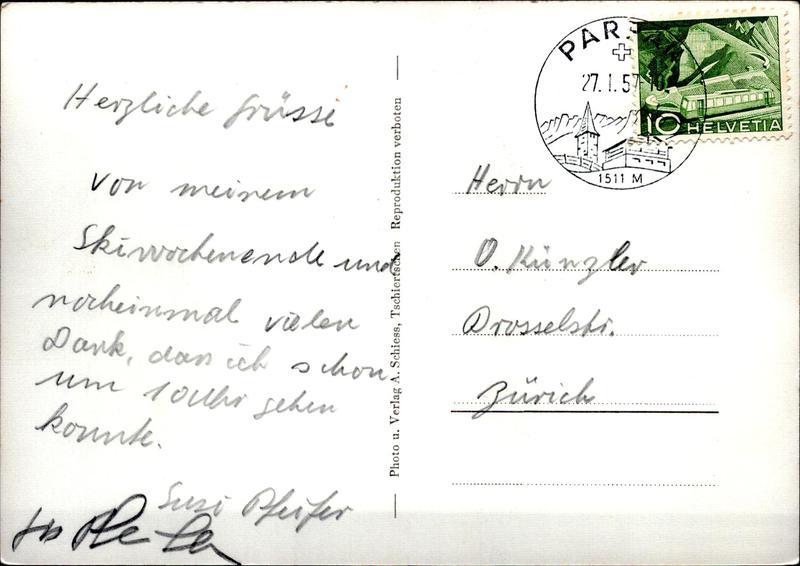 Herzliche Grüsse
von meinem
Skiwochenende und
nocheinmal vielen
Dank, dass ich schon
um 10 Uhr gehen
konnte.
Susi Pfeifer
Photo u. Verlag A. Schiess, Tschiertschen Reproduktion verboten
27.1.57
1511 M
10 HELVETIA
Herrn
O. Künzler
Drosselstr.
Zürich